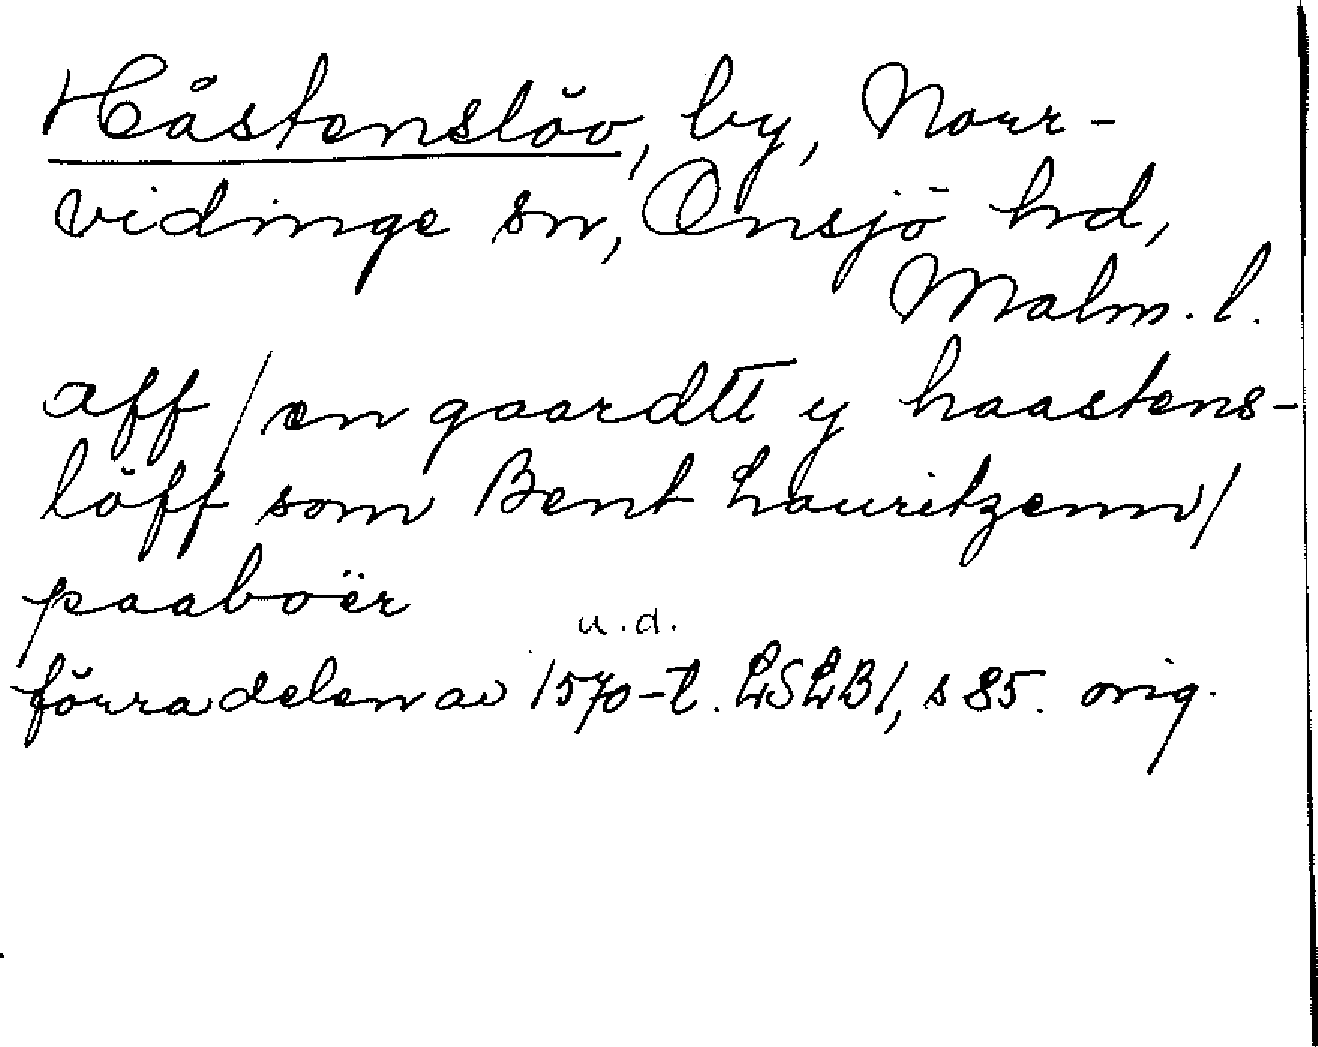 Håstenslöv, by, Norr-
vidinge sn, Onsjö hd,
Malm. l.
aff / en gaardtt y haastens-
löff som Bent Lauritzenn/
paaboër
u.d.
förra delen av 1570-t. LSLB1, s 85. orig.